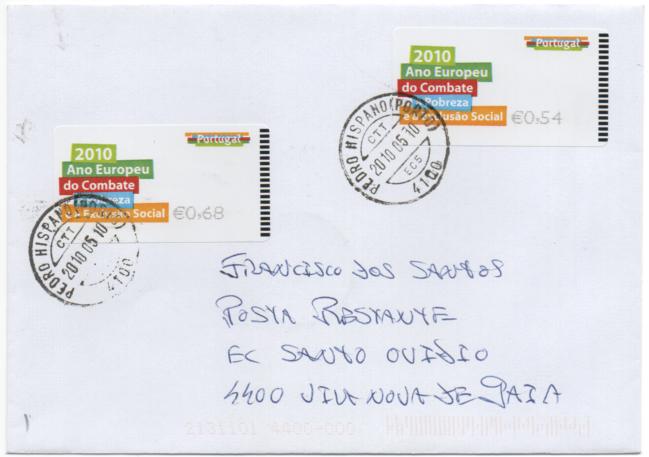 Portugal
2010
Ano Europeu
do Combate
Pobreza
e à Exclusão Social €0,54
PEDRO HISPANO (PORTO)
CTT
2010 05 10
EC5
4100
Portugal
2010
Ano Europeu
do Combate
e à Exclusão Social €0,68
PEDRO HISPANO
CTT
2010 05 10
4100
FRANCISCO DOS SANTOS
POSTA RESTANTE
EC SANTO OVIDIO
4400 VILA NOVA DE GAIA
2131101 4400-000